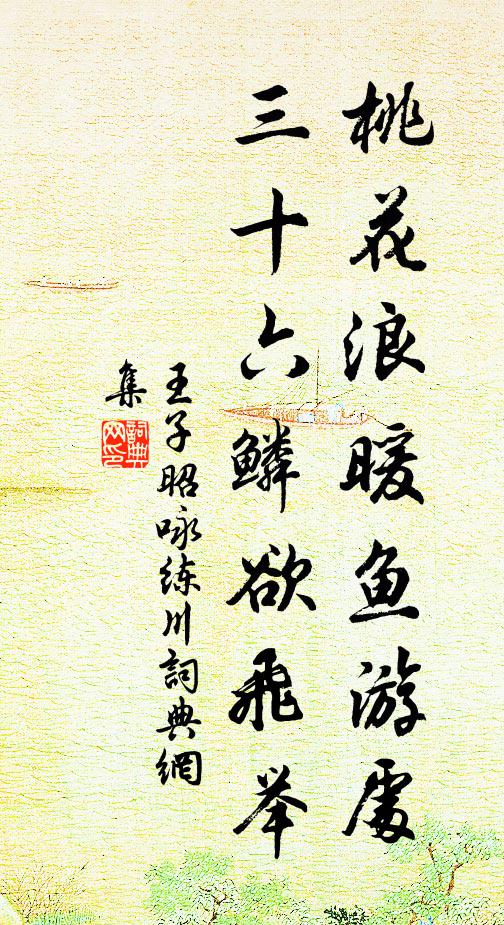 桃花浪暖鱼游處
三十六鳞欲飛举
王子昭咏练川詞典網
集
詞典网印